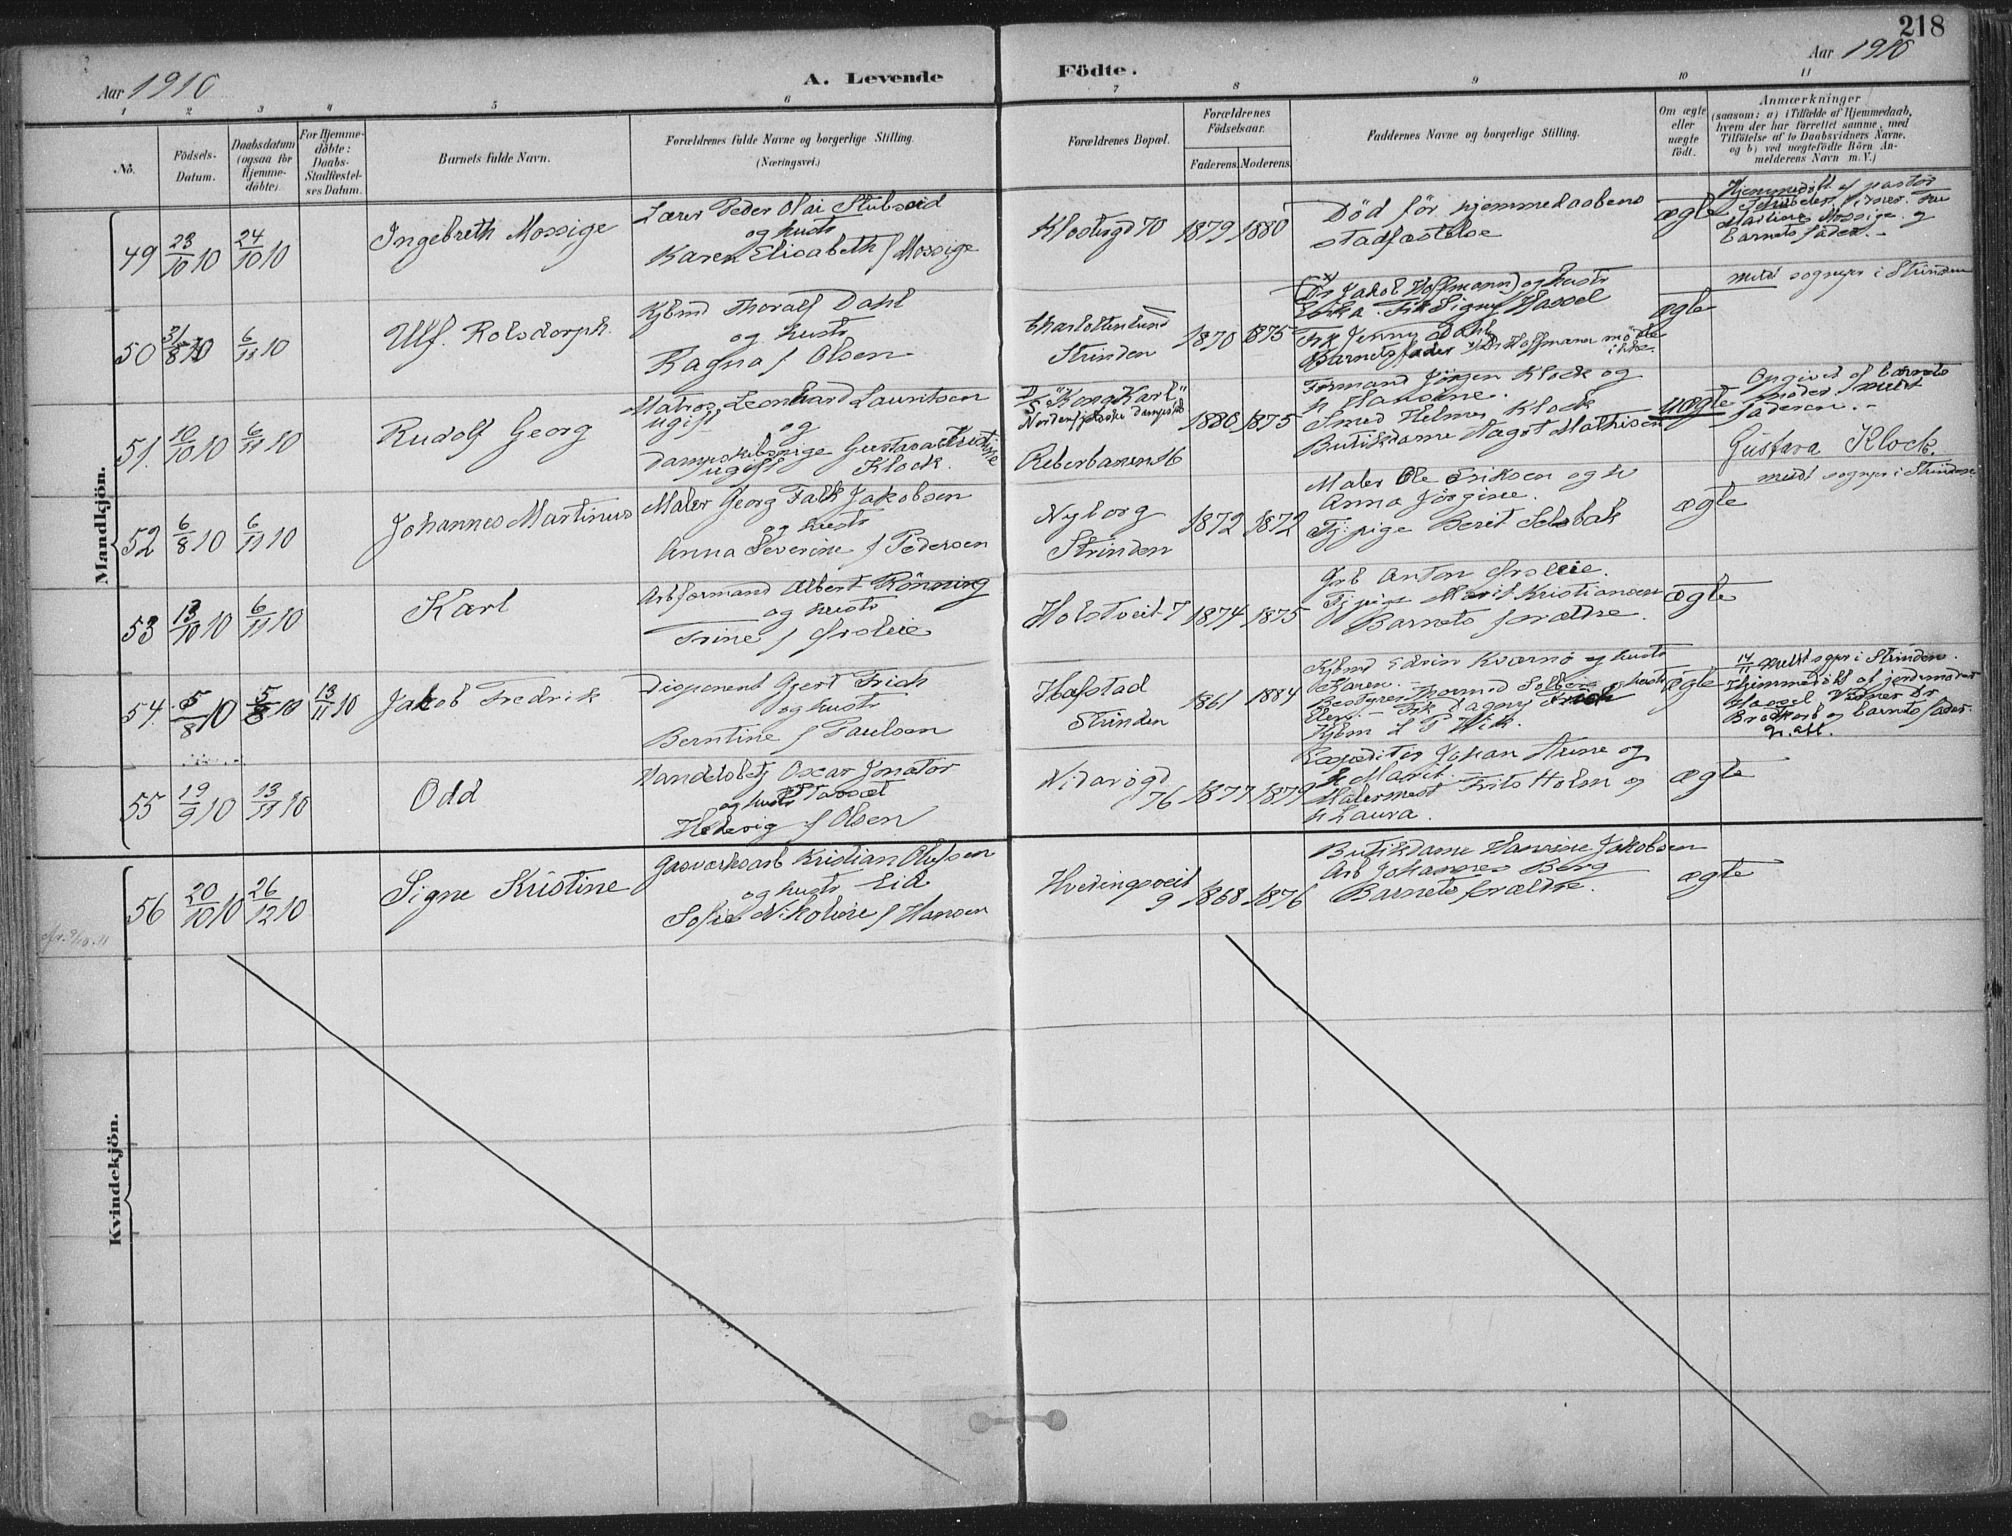 218
Aar 1910
A. Levende Födte.
Aar 1910
1 2 3 4 5 6 7 8 9 10 11
No.
Födsels-Datum.
Daabsdatum (ogsaa for Hjemme-døbte).
For Hjemme-døbte: Daabs-Stadfæstel-ses Datum.
Barnets fulde Navn.
Forældrenes fulde Navne og borgerlige Stilling. (Næringsvei.)
Forældrenes Bopæl.
Forældrenes Födselsaar.
Faderens. Moderens.
Faddernes Navne og borgerlige Stilling.
Om ægte eller uægte født.
Anmærkninger
(saasom: a) i Tilfælde af Hjemmedaab, hvem der har forrettet samme, med Tilføielse af to Daabsvidners Navne, og b) ved uægtefødte Börn An-melderens Navn m. V.)
Mandkjön.
49 23/10 10 24/10 10
Ingebreth Mossige
Lærer Peder Olai Stubseid
og hustr
Karen Elisabeth f Mossige
Klostergd 70
1879 1880
Død før hjemmedaabens
stadfæstelse
ægte
Hjemmedøbt af pastor
Mossige og
barnets fader.
50 31/8 10 6/11 10
Ulf. Rolsdorph.
Kjbmd Thoralf Dahl
og hustr
Ragna f Olsen
Charlottenlund
Strinden
1870 1875
Dr Jakob Hoffmann) og hustr
Frk Signy Hassel
Frk Jenny Dahl
Barnets fader Dr Hoffmann mødte
ikke.
ægte
meldt sognepr i Strinden
51. 10/10 10 6/11 10
Rudolf Georg
Matros Leonhard Lauritsen
ugift
og
Dampskibspige Gustava Kristine
ugift Klock.
D/S "Kong Karl"
Nordenfjeldske Dampskib
Reberbanen 16
1880 1875
Formand Jörgen Klock og
h Hansine.
Smed Helmer Klock
Butikdame Dagot Mathisen
uægte
Opgivet af barnets
moder / meldt
faderen.
Gustava Klock.
52 6/8 10 6/11 10
Johannes Martinus
Maler Georg Falk Jakobsen
og hustr
Anna Severine f Pedersen
Nyborg
Strinden
1872 1872
Maler Ole Eriksen og h
Anna Jörgine.
Tj.pige Berit Selsbak
ægte
meldt sognepr i Strinden
53 13/10 10 6/11 10
Karl
Arbformand Albert Rönning
og hustr
Trine f Örsleie
Holstveit 7
1874 1875
Arb Anton Örsleie.
Tj.pige Marit Kristiansen
Barnets forældre.
ægte
54. 5/8 10 5/8 10 13/11 10
Jakob Fredrik
Disponent Gjert Frich
og hustr
Berntine f Paulsen
Hafstad
Strinden
1861 1884
Kjbmd Edvin Kvarnø og hustr
Karen.
Bestyrer Thormod Solberg og hustr
Frk Dagny Frich
Kjbm L P Wik.
ægte
14/11 Meldt sogpr i Strinden.
Hjemmedøbt af jordmoder
Hassel Vidner Dr
og barnets fader.
55 19/9 10 13/11 10
Odd
Handelsbetj Oscar Ignator
og hustr Tassel
Hedevig f Olsen
Nidarøgd
76
1877 1879
Expeditør Johan Aune og
h Marit.
Malermest Frits Holm og
h Laura.
ægte
Kvindekjön.
56 20/10 10 26/12 10
Signe Kristine
Gasværksarb Kristian Olufsen
og hustr Eid
Sofie Nikoline f Hansen
Hvedingsveit
9
1868 1876
Butikdame Hansine Jakobsen
Arb Johannes Berg
Barnets forældre.
ægte